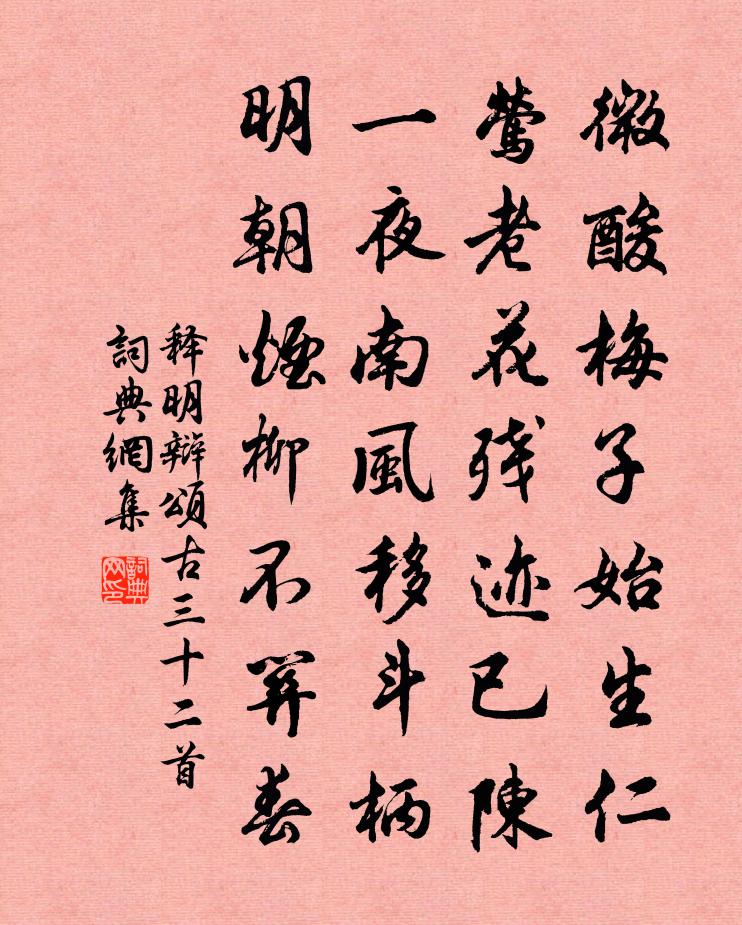 微酸梅子始生仁
莺老花残迹已陳
一夜南風移斗柄
明朝煙柳不算春
释明辩頌古三十二首
詞典網集
詞典网印